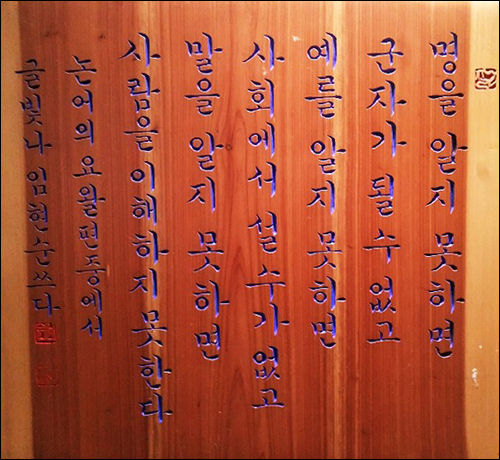 명을 알지 못하면
군자가 될 수 없고
예를 알지 못하면
사회에서 설 수가 없고
말을 알지 못하면
사람을 이해하지 못한다
논어의 요왈편 중에서
글빛나 임현순 쓰다